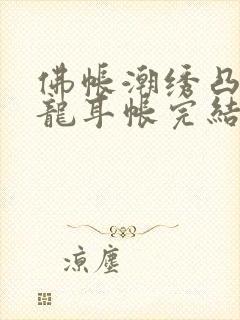 佛帐潮绣凸
龍耳帐完結
凉塵